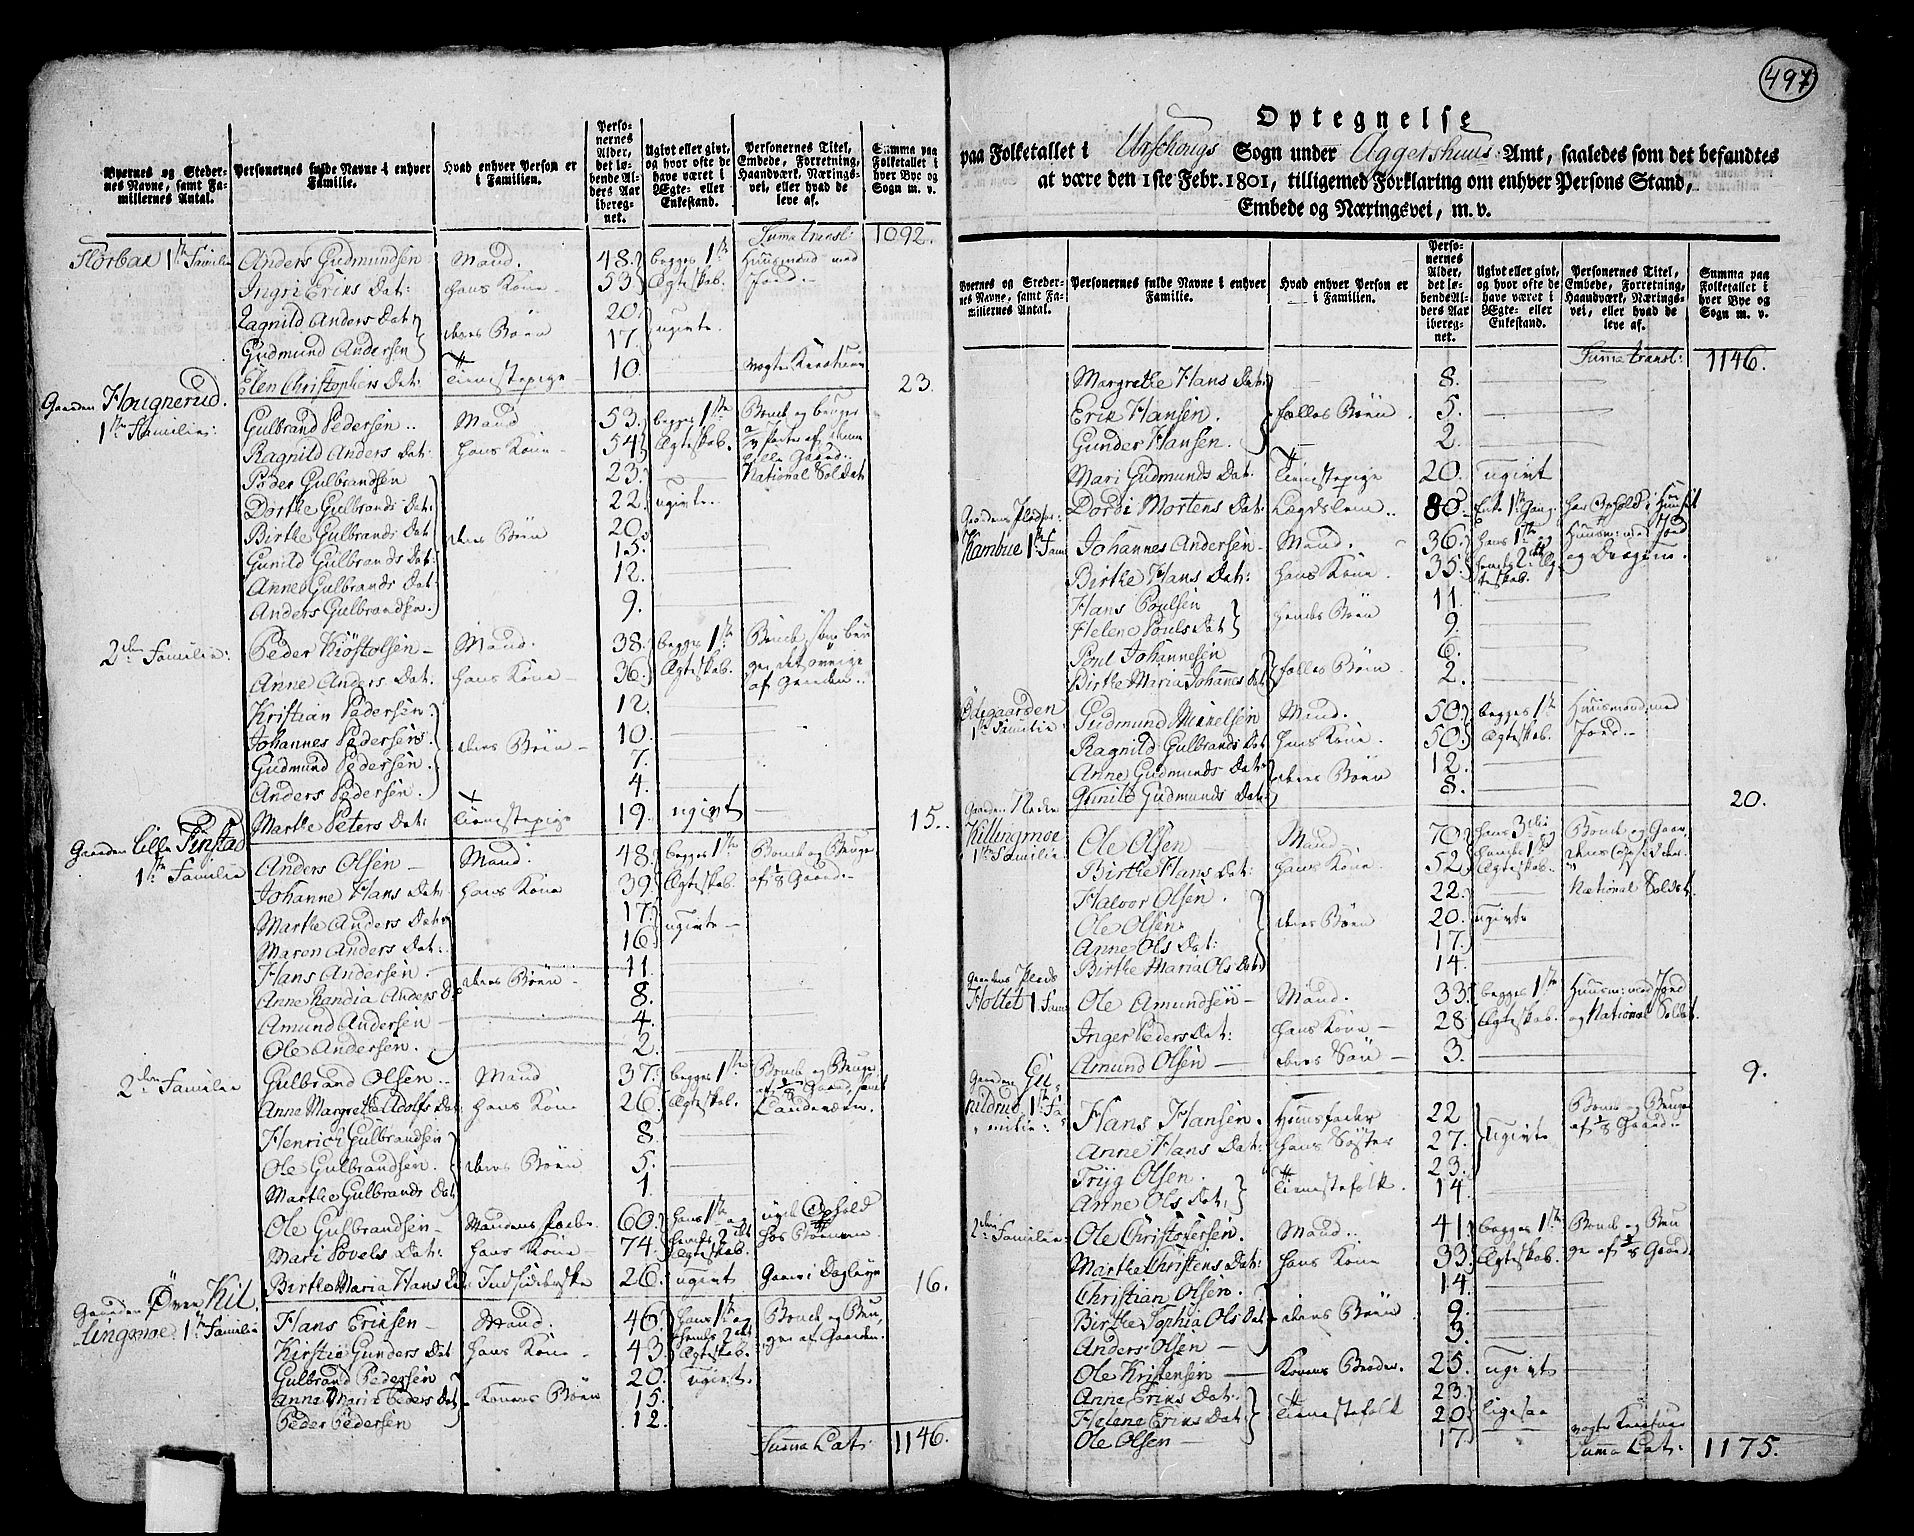 497
Byernes og Steder-
nes Navne, samt Fa-
millernes Antal.
Personernes fulde Navne i enhver
Familie.
Hvad enhver Person er
i Familien.
Perso-
nernes
Alder,
det lø-
bende Al-
ders Aar
iberegnet.
Ugivt eller givt,
og hvor ofte de
have været i
Ægte- eller
Enkestand.
Personernes Titel,
Embede, Forretning,
Haandværk, Nærings-
vei, eller hvad de
leve af.
Summa paa
Folketallet i
hver Bye og
Sogn m. v.
Suma transl: 1092.
1ste Familie Anders Gudmundsen Mand. 48. begges 1ste Huusmand med
Ingri Eriks Dat: hans Kone 53. Ægteskab. Jord
Ragnild Anders Dat: 20. ugivte.
Gudmund Andersen deres Børn 17.
Elen Christophers Dat: Tienestepige 10.
23.
Gaarden Hougnerud.
1ste Familie: Gulbrand Pedersen Mand 53. begges 1ste Bonde og bruger
Ragnild Anders Dat: hans Kone 54. Ægteskab.
Peder Gulbrandsen 23. National Soldat
Dorthe Gulbrands Dat: 22. ugivte
Birthe Gulbrands Dat: deres Børn 20.
Gunild Gulbrands Dat: 15.
Anne Gulbrands Dat: 12.
Anders Gulbrandsen 9.
2den Familie: Peder Kiøstolsen Mand. 38. begges 1ste Bonde, som bru
Anne Anders Dat: hans Kone 36. Ægteskab. ger det øvrige
af Gaarden
Kristian Pedersen 12.
Johannes Pedersen deres Børn 10.
Gudmund Pedersen 7.
Anders Pedersen 4.
Marthe Peters Dat: Tienestepige 19. ugivt
15.
Gaarden Lille Finstad
1ste Familie Anders Olsen Mand 48. begges 1ste Bonde og Bruger
Johanne Hans Dat: hans Kone 39. Ægteskab. Gaard
Marthe Anders Dat: 17. ugivte
Maren Anders Dat: 16.
Hans Andersen deres Børn 11.
Anne Anders D. 8.
Amund Andersen 4.
Ole Andersen 2.
2den Familie Gulbrand Olsen Mand 37. begges 1ste Bonde og Bruger
Anne Margrethe Adolfs Dat: hans Kone 26. Ægteskab. Gaard, samt
Henrich Gulbrandsen 8.
Ole Gulbrandsen deres Børn 5.
Marthe Gulbrands Dat 1.
Ole Gulbrandsen Mandens Fader 60. hans 1ste og
Mari Povels Dat: hans Kone 74. hendes 2det Ægteskab.
Birthe Maria Hans Dat Indsiderske 26. ugivt
16.
Gaarden Øvre Kil
lingmoe 1ste Familie Hans Eriksen Mand. 46. hans 1ste og Bonde og Bru
Kirstie Gunders Dat hans Kone 43. hendes 2det Ægteskab. ger af Gaarden.
Gulbrand Pedersen 20. ugivt.
Anne Marie Peders Dat Konens Børn 15.
Peder Pedersen 12.
Suma Lat: 1146.
Optegnelse
paa Folketallet i Urschougs Sogn under Aggershuus Amt, saaledes som det befandtes
at være den 1ste Febr. 1801, tilligemed Forklaring om enhver Persons Stand,
Embede og Næringsvei, m. v.
Byernes og Steder-
nes Navne, samt Fa-
millernes Antal.
Personernes fulde Navne i enhver
Familie.
Hvad enhver Person er
i Familien.
Perso-
nernes
Alder,
det lø-
bende Al-
ders Aar
iberegnet.
Ugivt eller givt,
og hvor ofte de
have været i
Ægte- eller
Enkestand.
Personernes Titel,
Embede, Forretning,
Haandværk, Nærings-
vei, eller hvad de
leve af.
Summa paa
Folketallet i
hver Bye og
Sogn m. v.
Suma transl: 1146.
Margrethe Hans Dat: 8.
Erik Hansen. fælles Børn 5.
Gunder Hansen. 2.
Mari Gudmunds Dat: Tienestepige 20. ugivt
Dordi Mortens Dat: Lægdslem 80. Enke 1ste Gang.
1ste Fam Johannes Andersen Mand. 36. hans 1ste og Huusm: med Jord
Birthe Hans Dat: hans Kone 35. hendes 2det Æg-
teskab.
Hans Poulsen hendes Børn 11.
Helene Pouls Dat 9.
Poul Johannesen 6.
Birthe Maria Johannes Dat fælles Børn 2.
Ødegaarden
1ste Familie Gudmund Mikkelsen Mand. 50. begges 1ste Huusmand med
Ragnild Gulbrands Dat hans Kone 50. Ægteskab. Jord
Anne Gudmunds Dat: deres Børn 12.
Gunild Gudmunds Dat: 8.
20.
Gaarden Nedre
Killingmoe
1ste Familie Ole Olsen Mand. 70. hans 3die og Bonde og Gaar
Birthe Hans Dat: hans Kone 52. hendes 1ste Ægteskab.
Halvor Olsen. 22. National Soldat.
Ole Olsen deres Børn 20. ugivte
Anne Ols Dat: 17.
Birthe Maria Ols Dat 14.
Gaardens Plads
Holtet 1 Fam Ole Amundsen Mand. 33. begges 1ste Huusm: med Jord
Inger Peders Dat: hans Kone 28. Ægteskab. og National Soldat.
Amund Olsen deres Søn 3.
9.
Gaarden Gu
nildrud 1ste Fa
milie: Hans Hansen. Huusfader 22 ugivte Bonde og Bruger
Anne Hans Dat: hans Søster 27. Gaard
Tryg Olsen. Tienestefolk. 23.
Anne Ols Dat: 14.
2den Familie: Ole Christofersen. Mand. 41. begges 1ste Bonde og Bru
Marthe Christens Dat: hans Kone 33. Ægteskab. ger af Gaard
Christian Olsen. 14.
Birthe Sophia Ols Dat deres Børn 9.
Anders Olsen 3.
Ole Kristensen Konens Broder. 25. ugivt
Anne Eriks Dat: Tienestefolk 23. ligesaa
Helene Eriks Dat: 20.
Ole Olsen 17.
Suma Lat: 1175.